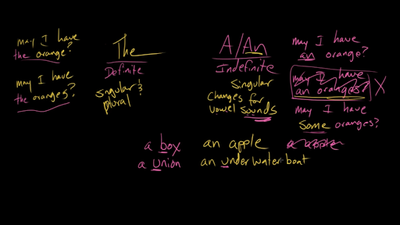 may I have
the orange?
may I have
the oranges?
The
Definite
singular &
plural
A/An
Indefinite
Singular
Changes for
vowel sounds
may I have
an orange?
may I have
an oranges?
X
may I have
some oranges?
a box
an apple
a union
an underwater boat